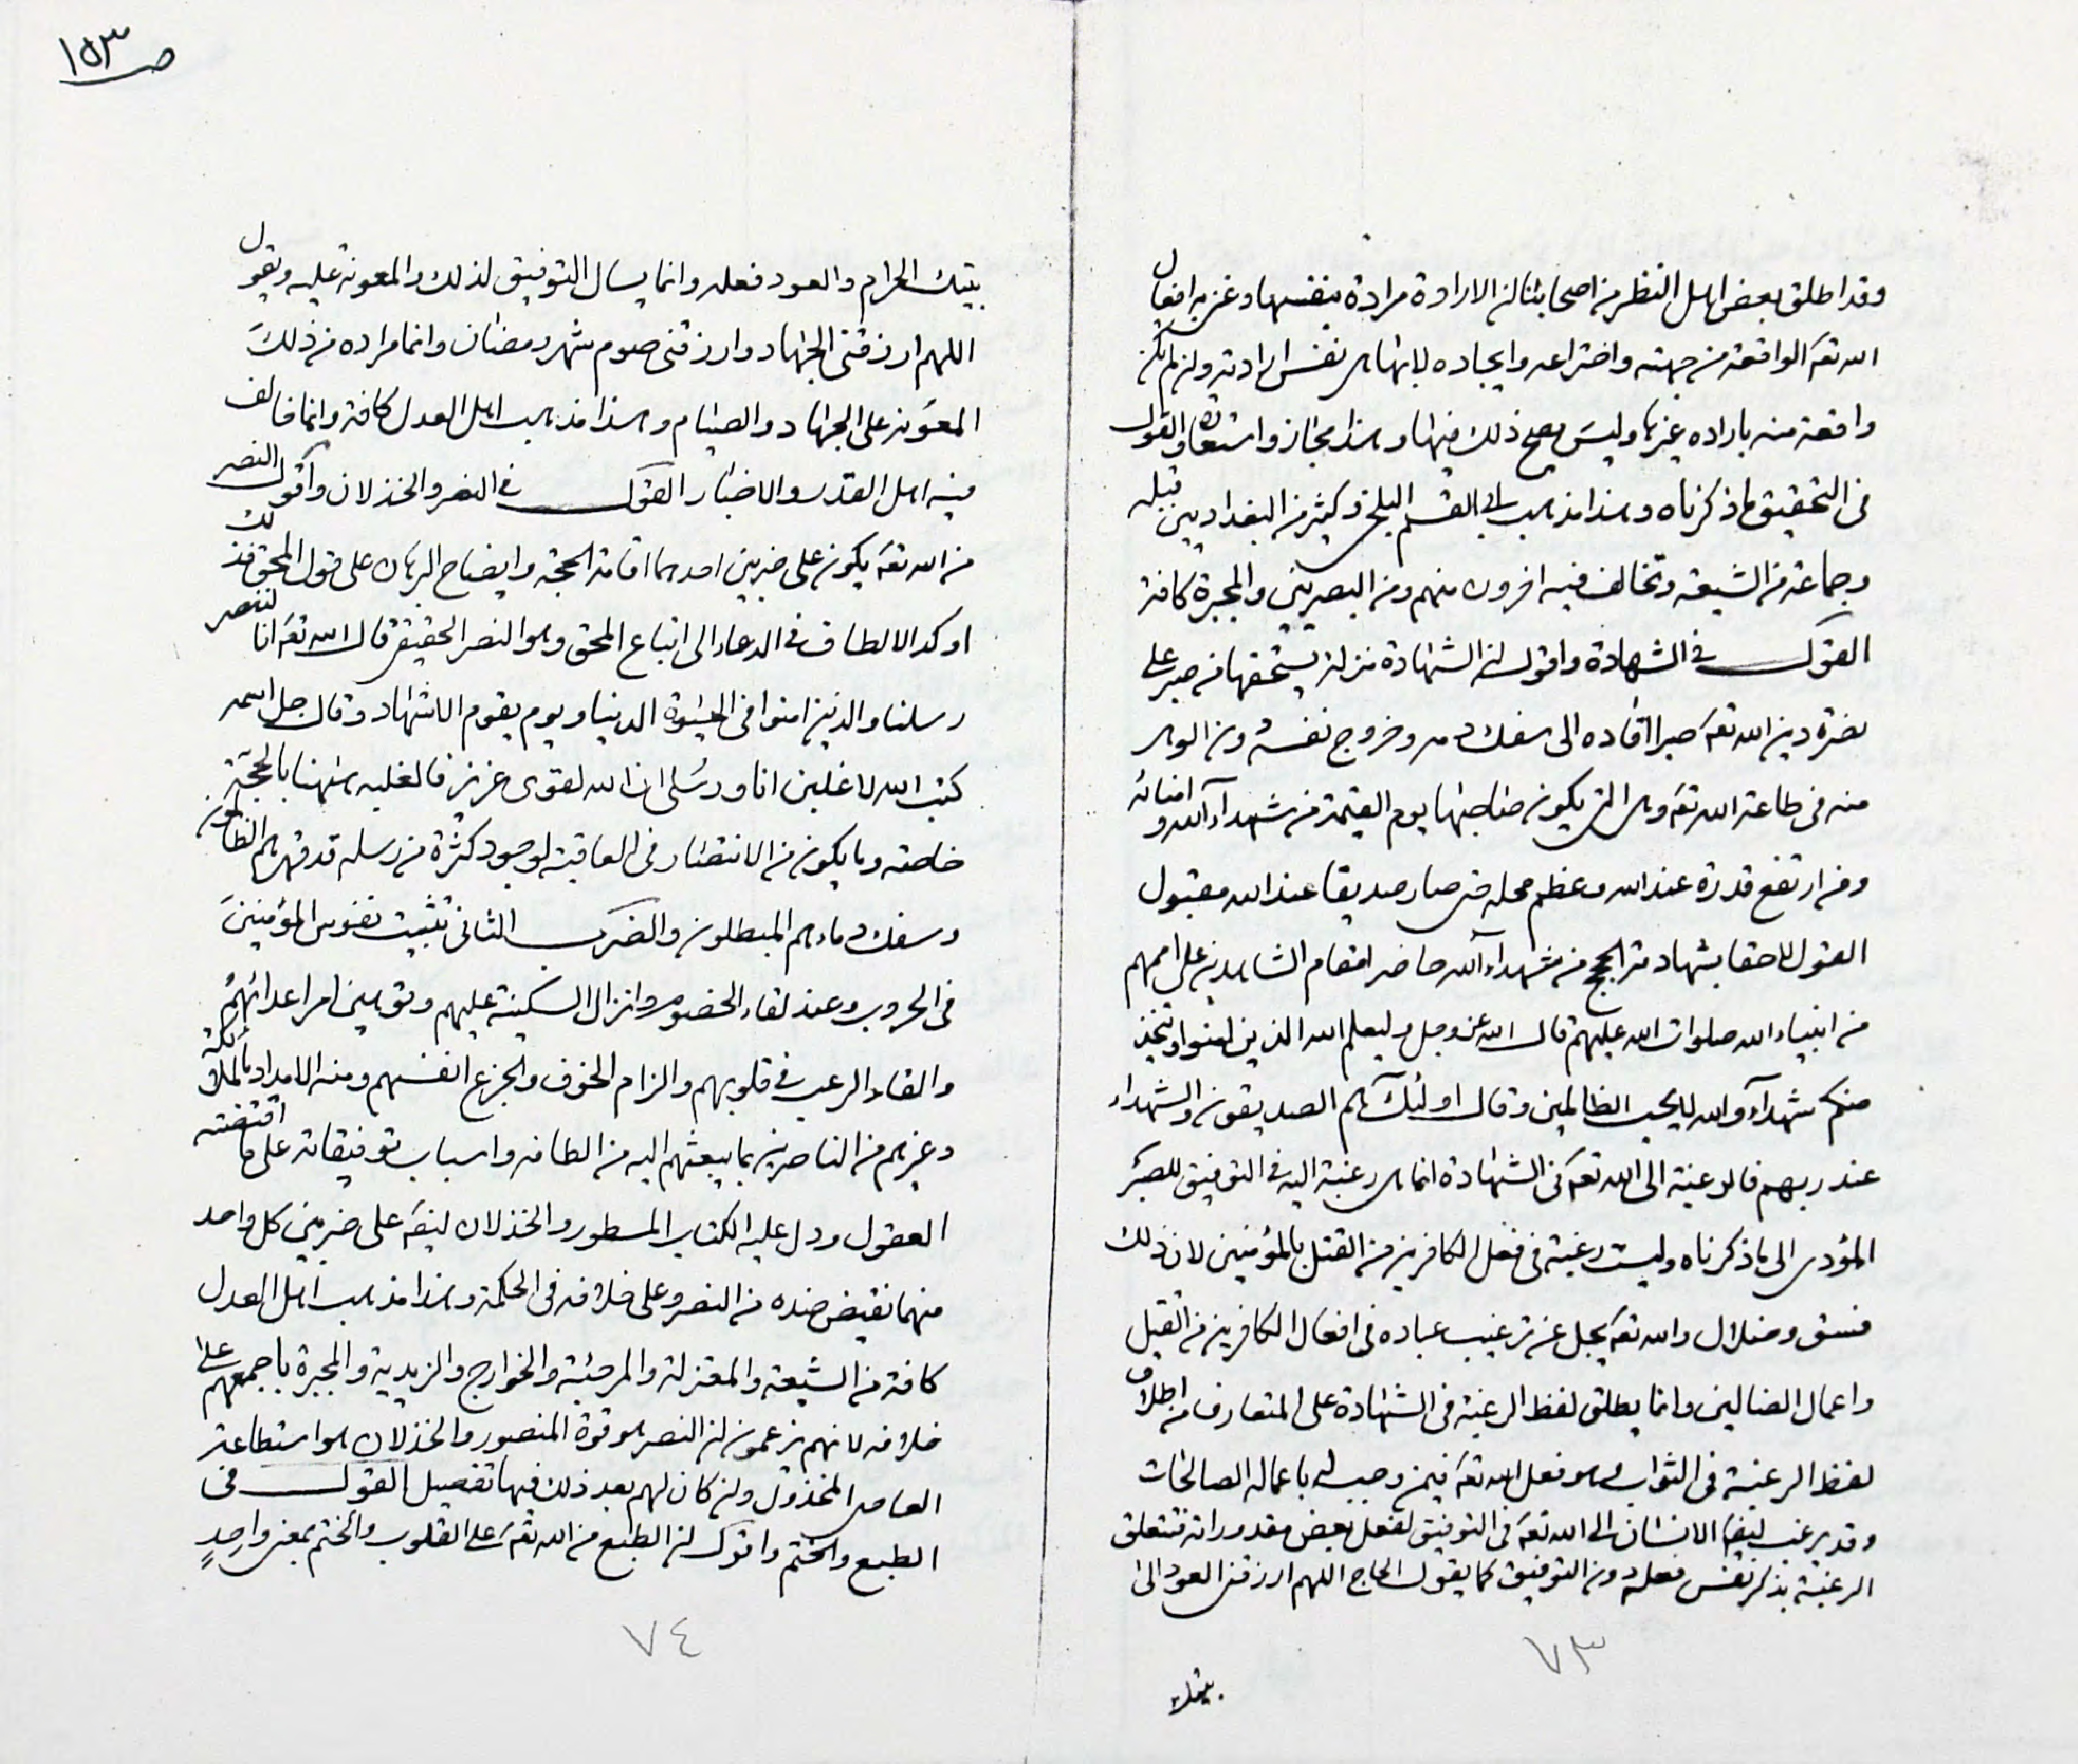 ص ١٥٣
وقد اطلق بعض اهل النظر من اصحابنا ان الارادة مرادة بنفسها وغيره افعال
الله تعه الواقعة من جهته واختراعه وايجاده لانها هى نفس ارادته ولن لم تكن
واقعة منه باراده غيرها وليس يصح ذلك فيها وهذا مجاز واستعارة والقول
فى التحقيق ما ذكرناه وهذا مذهب ابى القسم البلخى وكثير من البغداديين قبله
وجماعة من الشيعه وتخالف فيه اخرون منهم ومن البصريين والمجبرة كافة
القول فى الشهادة واقول ان الشهادة منزلة يستحقها من صبر على
نصرة دين الله تعه صبرا قاده الى سفك دمه وخروج نفسه دون الوهن
منه فى طاعة الله تعه وهى التى يكون صاحبها يوم القيمة من شهدآء الله و امنائه
ومن ارتفع قدره عند الله وعظم محله حتى صار صديقا عند الله مقبول
القول لاحقا بشهادته الحجج من شهداء الله حاضرا مقام الشاهدين على اممهم
من انبياء الله صلوات الله عليهم قال الله عز وجل وليعلم الله الذين امنوا ويتخذ
منكم شهدآء والله لا يحب الظالمين وقال اولئك هم الصديقون والشهداء
عند ربهم فالرغبة الى الله تعه فى الشهادة انما هى رغبة اليه فى التوفيق للصبر
المؤدى الى ما ذكرناه وليست رغبة فى فعل الكافرين من القتل بالمؤمنين لان ذلك
فسق وضلال والله تعه يجل عن ترغيب عباده فى افعال الكافرين من القتل
واعمال الضالين وانما يطلق لفظ الرغبة فى الشهادة على المتعارف من اطلاق
لفظ الرغبة فى الثواب وهو فعل الله تعه فيمن وجب له باعماله الصالحات
وقد يرغب ايضا الانسان الى الله تعه فى التوفيق لفعل بعض مقدوراته فتتعلق
الرغبة بذكر نفس فعله دون التوفيق كما يقول الحاج اللهم ارزقنى العود الى
٧٣
بيتك الحرام والعود فعله وانما يسال التوفيق لذلك والمعونة عليه ويقول
اللهم ارزقنى الجهاد وارزقنى صوم شهر رمضان وانما مراده من ذلك
المعونة على الجهاد والصيام وهذا مذهب اهل العدل كافة وانما خالف
فيه اهل القدر والاجبار القول فى النصر والخذلان واقول النصر
من الله تعه يكون على ضربين احدهما اقامة الحجة وايضاح البرهان على قول المحق فذلك
اوكد الالطاف فى الدعاء الى اتباع المحق وهو النصر الحقيقى قال الله تعه انا لننصر
رسلنا والذين امنوا فى الحيوة الدنيا ويوم يقوم الاشهاد وقال جل اسمه
كتب الله لاغلبن انا ورسلى ان الله لقوى عزيز فالغلبه هيهنا بالحجة
خاصة وما يكون من الانتصار فى العاقبة لوجود كثرة من رسله قد قهرهم الظالمون
وسفك دماءهم المبطلون والضرب الثانى تثبيت نفوس المؤمنين
فى الحروب وعند لقاء الخصوم وانزال السكينة عليهم وتوهين امر اعدائهم
والقاء الرعب فى قلوبهم والزام الخوف والجزع انفسهم ومنه الامداد بالملائكة
وغيرهم من الناصرين بما يبعثهم اليه من الطافه واسباب توفيقاته على ما اقتضته
العقول ودل عليه الكتاب المسطور والخذلان ايضه على ضربين كل واحد
منهما نقيض ضده من النصر وعلى خلافه فى الحكمة وهذا مذهب اهل العدل
كافة من الشيعة والمعتزلة والمرجئة والخوارج والزيدية والمجبرة باجمعهم على
خلافه لانهم يزعمون ان النصر هو قوة المنصور والخذلان هو استطاعة
العاصى المخذول ولن كان لهم بعد ذلك فيها تفصيل القول فى
الطبع والختم واقول ان الطبع من الله تعه على القلوب والختم بمعنى واحدٍ
٧٤